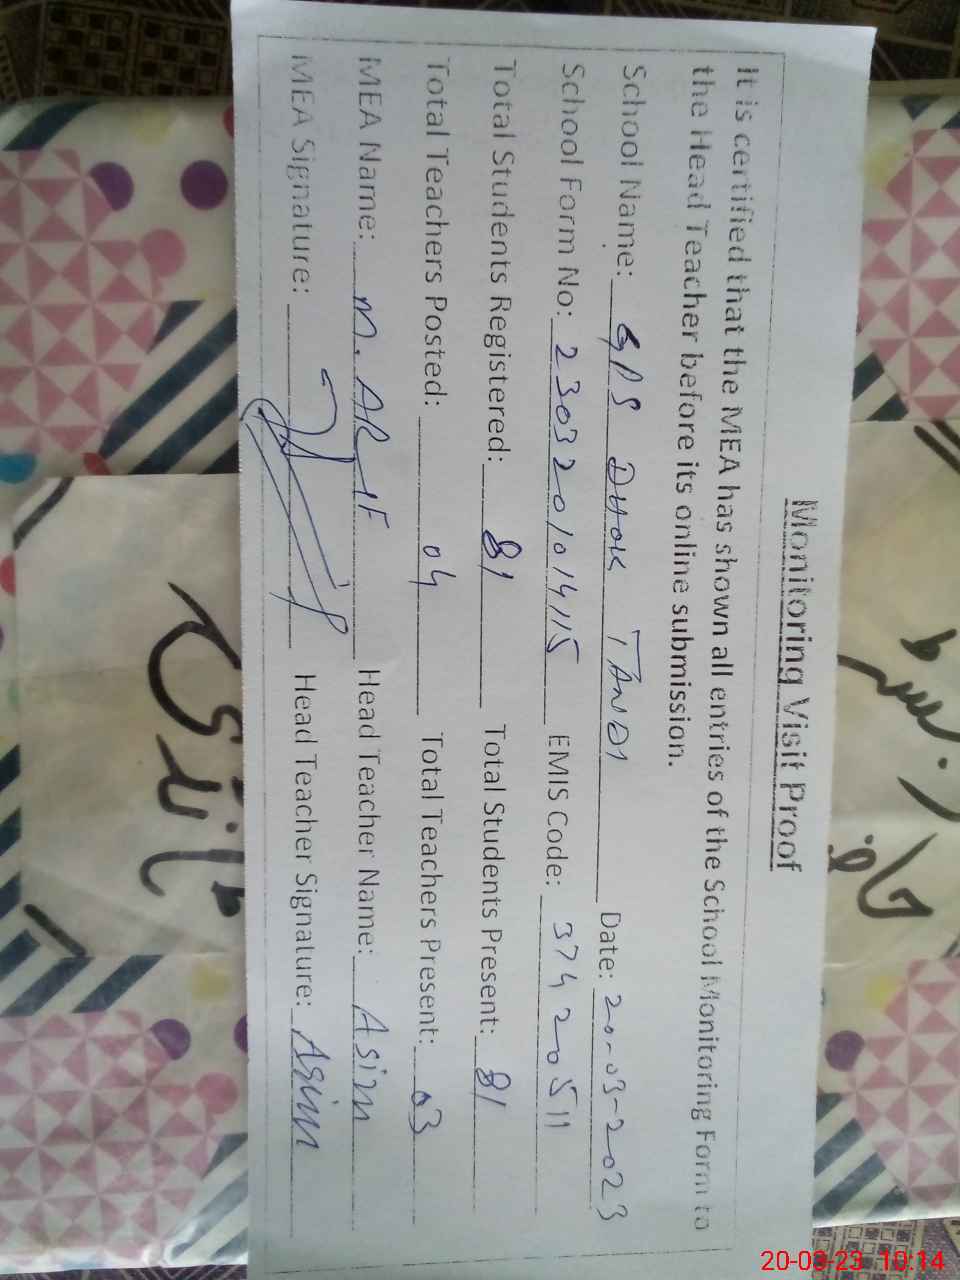 Monitoring Visit Proof
It is certified that the MEA has shown all entries of the School Monitoring Form to
the Head Teacher before its online submission.
School Name: GPS DHOK TANDI Date: 20-03-2023
School Form No: 2303201014115 EMIS Code: 37420511
Total Students Registered: 81 Total Students Present: 81
Total Teachers Posted: 04 Total Teachers Present: 03
MEA Name: M. ARIF Head Teacher Name: Asim
MEA Signature: Head Teacher Signature: Asim
20-03-23 10:14